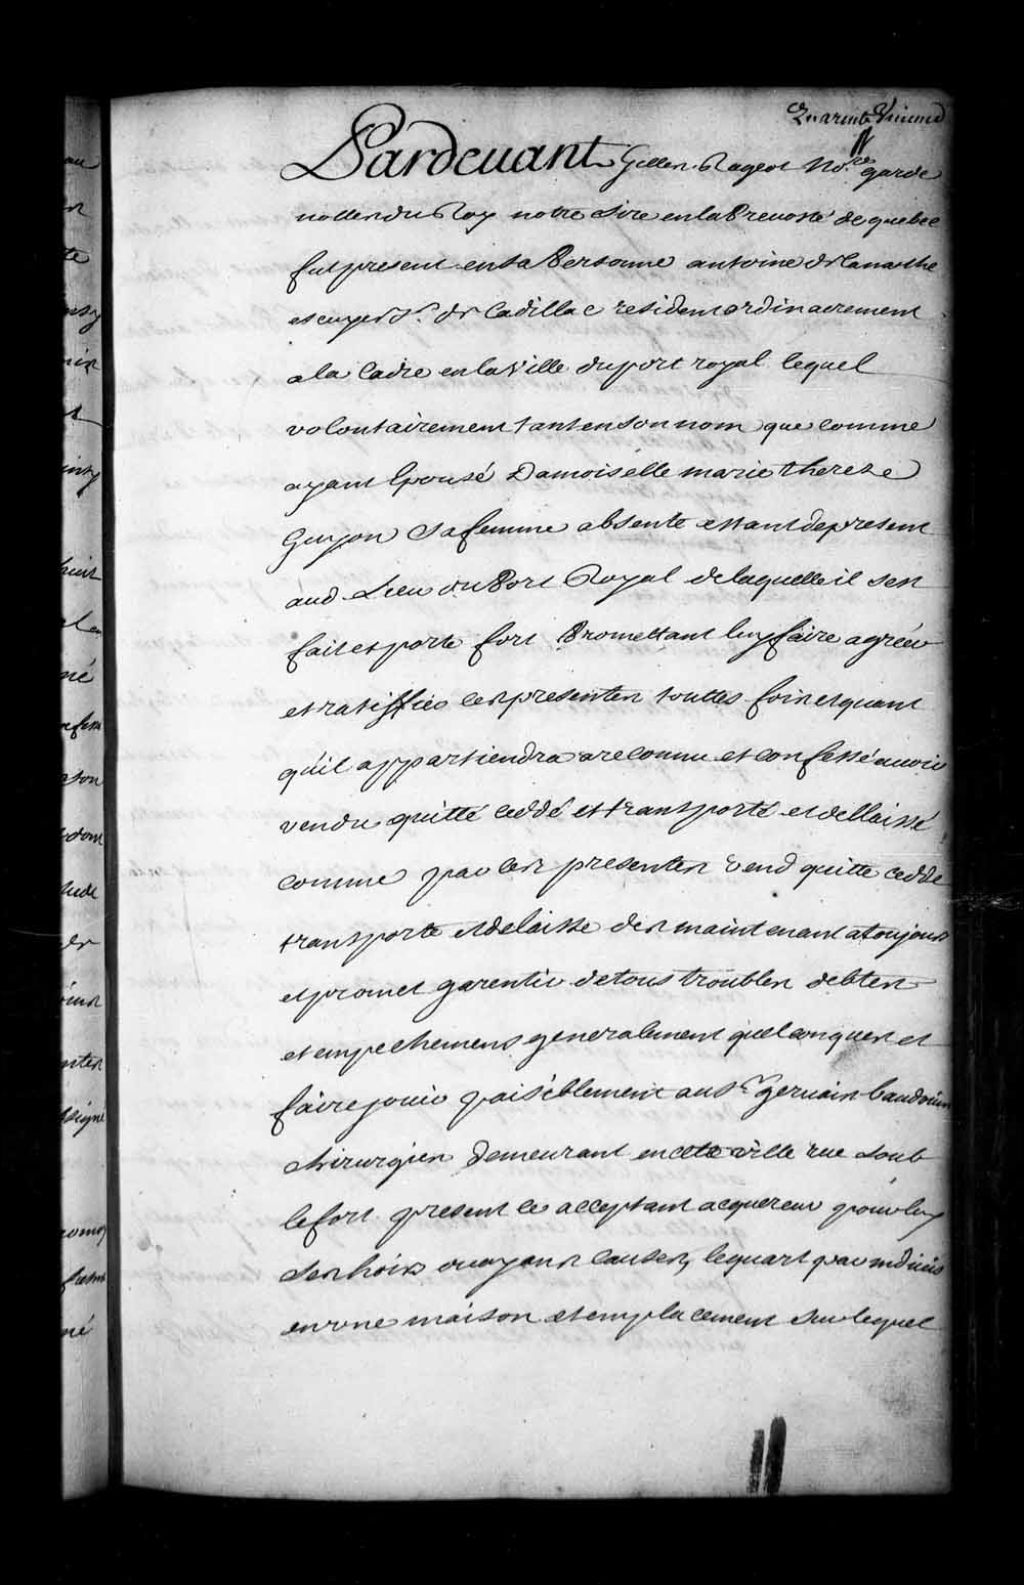 Quarante Unieme
Pardeuant Gilles Rageot No.re garde
nottes du Roy notre Sire en la Preuosté de quebec
fut present en sa Personne antoine de la mothe
escuyer Sr. de Cadillac resident ordinairement
a la Cadie en la Ville du port royal lequel
volontairement tant en son nom que comme
ayant Epousé Damoiselle marie therese
Guyon sa femme absente estant de present
aud Lieu du Port Royal de laquelle il s'est
fait et porte fort Promettant luy faire agréer
et ratiffier ces presentes touttes fois et quant
quil appartiendra a reconnu et confessé auoir
vendu quitté ceddé et transporté et dellaissé
comme par ces presentes Vend quitte cedde
transporte et delaisse des maintenant a toujours
et promet garentir de tous troubles debtes
et empechemens generalement quelconques et
faire jouir paisiblement au Sr. gervais baudouin
chirurgien demeurant en cette ville rue soub
le fort present et acceptant acquereur pour luy
ses hoirs ou ayans causes, le quart par indiuis
en vne maison et emplacement sur lequel